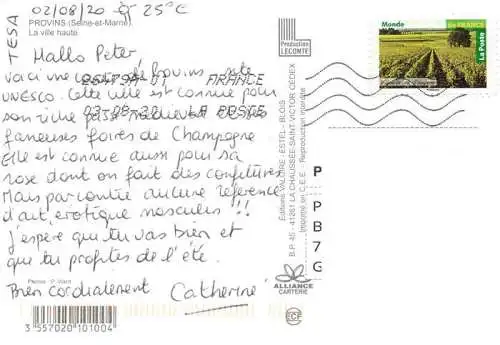 02/08/20 25°C
PROVINS (Seine-et-Marne)
La ville haute
TESA
Hallo Peter,
Voici une carte de Provins, site
UNESCO. Cette ville est connue pour
son ville médiévale et ses
fameuses foires de Champagne
Elle est connue aussi pour sa
rose dont on fait des confitures
Mais par contre aucune référence
d'art érotique masculin !!
J'espère que tu vas bien et
que tu profites de l'été.
Bien cordialement
Catherine
FRANCE
03-08-20 LA POSTE
Photo : P. Viard
3 557020 101004
Production
LECONTE
Editions VALOIRE - ESTEL - BLOIS
B.P. 45 - 41261 LA CHAUSSÉE-SAINT-VICTOR CEDEX
Imprimé en C.E.E. - Reproduction interdite
ALLIANCE
CARTERIE
ECF
Monde
FRANCE
La Poste
P
PPB7G